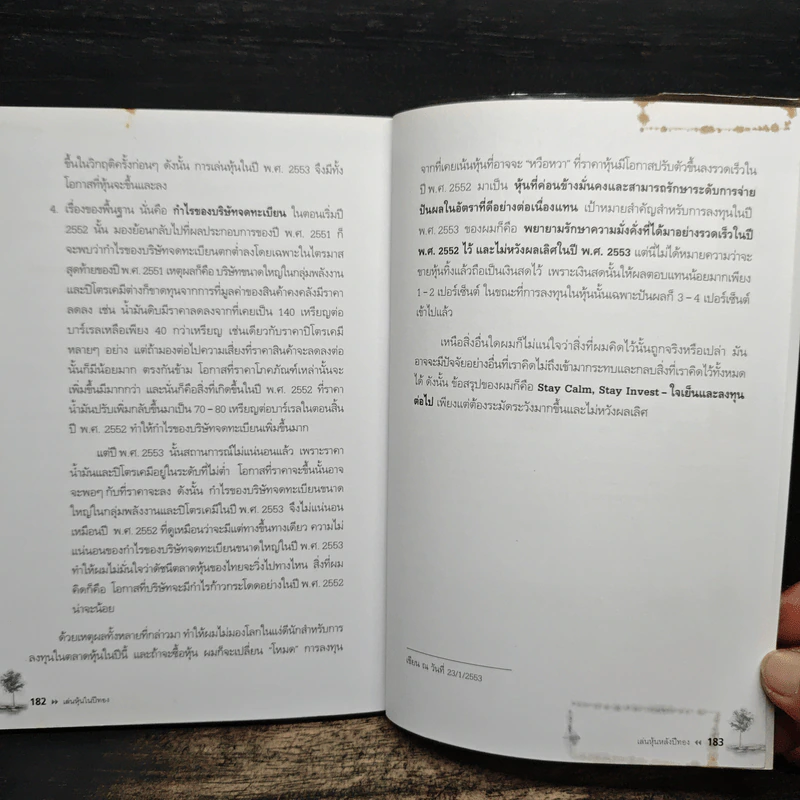 ขึ้นในวิกฤติครั้งก่อนๆ ดังนั้น การเล่นหุ้นในปี พ.ศ. 2553 จึงมีทั้ง
โอกาสที่หุ้นจะขึ้นและลง
4. เรื่องของพื้นฐาน นั่นคือ กำไรของบริษัทจดทะเบียน ในตอนเริ่มปี
2552 นั้น มองย้อนกลับไปที่ผลประกอบการของปี พ.ศ. 2551 ก็
จะพบว่ากำไรของบริษัทจดทะเบียนตกต่ำลงโดยเฉพาะในไตรมาส
สุดท้ายของปี พ.ศ. 2551 เหตุผลก็คือ บริษัทขนาดใหญ่ในกลุ่มพลังงาน
และปิโตรเคมีต่างก็ขาดทุนจากการที่มูลค่าของสินค้าคงคลังมีราคา
ลดลง เช่น น้ำมันดิบมีราคาลดลงจากที่เคยเป็น 140 เหรียญต่อ
บาร์เรลเหลือเพียง 40 กว่าเหรียญ เช่นเดียวกับราคาปิโตรเคมี
หลายๆ อย่าง แต่ถ้ามองต่อไปความเสี่ยงที่ราคาสินค้าจะลดลงต่อ
นั้นก็มีน้อยมาก ตรงกันข้าม โอกาสที่ราคาโภคภัณฑ์เหล่านั้นจะ
เพิ่มขึ้นมีมากกว่า และนั่นก็คือสิ่งที่เกิดขึ้นในปี พ.ศ. 2552 ที่ราคา
น้ำมันปรับเพิ่มกลับขึ้นมาเป็น 70 – 80 เหรียญต่อบาร์เรลในตอนสิ้น
ปี พ.ศ. 2552 ทำให้กำไรของบริษัทจดทะเบียนเพิ่มขึ้นมาก
แต่ปี พ.ศ. 2553 นั้นสถานการณ์ไม่แน่นอนแล้ว เพราะราคา
น้ำมันและปิโตรเคมีอยู่ในระดับที่ไม่ต่ำ โอกาสที่ราคาจะขึ้นนั้นอาจ
จะพอๆ กับที่ราคาจะลง ดังนั้น กำไรของบริษัทจดทะเบียนขนาด
ใหญ่ในกลุ่มพลังงานและปิโตรเคมีในปี พ.ศ. 2553 จึงไม่แน่นอน
เหมือนปี พ.ศ. 2552 ที่ดูเหมือนว่าจะมีแต่ทางขึ้นทางเดียว ความไม่
แน่นอนของกำไรของบริษัทจดทะเบียนขนาดใหญ่ในปี พ.ศ. 2553
ทำให้ผมไม่มั่นใจว่าดัชนีตลาดหุ้นของไทยจะวิ่งไปทางไหน สิ่งที่ผม
คิดก็คือ โอกาสที่บริษัทจะมีกำไรก้าวกระโดดอย่างในปี พ.ศ. 2552
น่าจะน้อย
ด้วยเหตุผลทั้งหลายที่กล่าวมา ทำให้ผมไม่มองโลกในแง่ดีนักสำหรับการ
ลงทุนในตลาดหุ้นในปีนี้ และถ้าจะซื้อหุ้น ผมก็จะเปลี่ยน "โหมด" การลงทุน
182 ▸▸ เล่นหุ้นในปีทอง
จากที่เคยเน้นหุ้นที่อาจจะ "หวือหวา" ที่ราคาหุ้นมีโอกาสปรับตัวขึ้นลงรวดเร็วใน
ปี พ.ศ. 2552 มาเป็น หุ้นที่ค่อนข้างมั่นคงและสามารถรักษาระดับการจ่าย
ปันผลในอัตราที่ดีอย่างต่อเนื่องแทน เป้าหมายสำคัญสำหรับการลงทุนในปี
พ.ศ. 2553 ของผมก็คือ พยายามรักษาความมั่งคั่งที่ได้มาอย่างรวดเร็วในปี
พ.ศ. 2552 ไว้ และไม่หวังผลเลิศในปี พ.ศ. 2553 แต่นี่ไม่ได้หมายความว่าจะ
ขายหุ้นทิ้งแล้วถือเป็นเงินสดไว้ เพราะเงินสดนั้นให้ผลตอบแทนน้อยมากเพียง
1 – 2 เปอร์เซ็นต์ ในขณะที่การลงทุนในหุ้นนั้นเฉพาะปันผลก็ 3 – 4 เปอร์เซ็นต์
เข้าไปแล้ว
เหนือสิ่งอื่นใดผมก็ไม่แน่ใจว่าสิ่งที่ผมคิดไว้นั้นถูกจริงหรือเปล่า มัน
อาจจะมีปัจจัยอย่างอื่นที่เราคิดไม่ถึงเข้ามากระทบและกลบสิ่งที่เราคิดไว้ทั้งหมด
ได้ ดังนั้น ข้อสรุปของผมก็คือ Stay Calm, Stay Invest – ใจเย็นและลงทุน
ต่อไป เพียงแต่ต้องระมัดระวังมากขึ้นและไม่หวังผลเลิศ
เขียน ณ วันที่ 23/1/2553
เล่นหุ้นหลังปีทอง ◂◂ 183